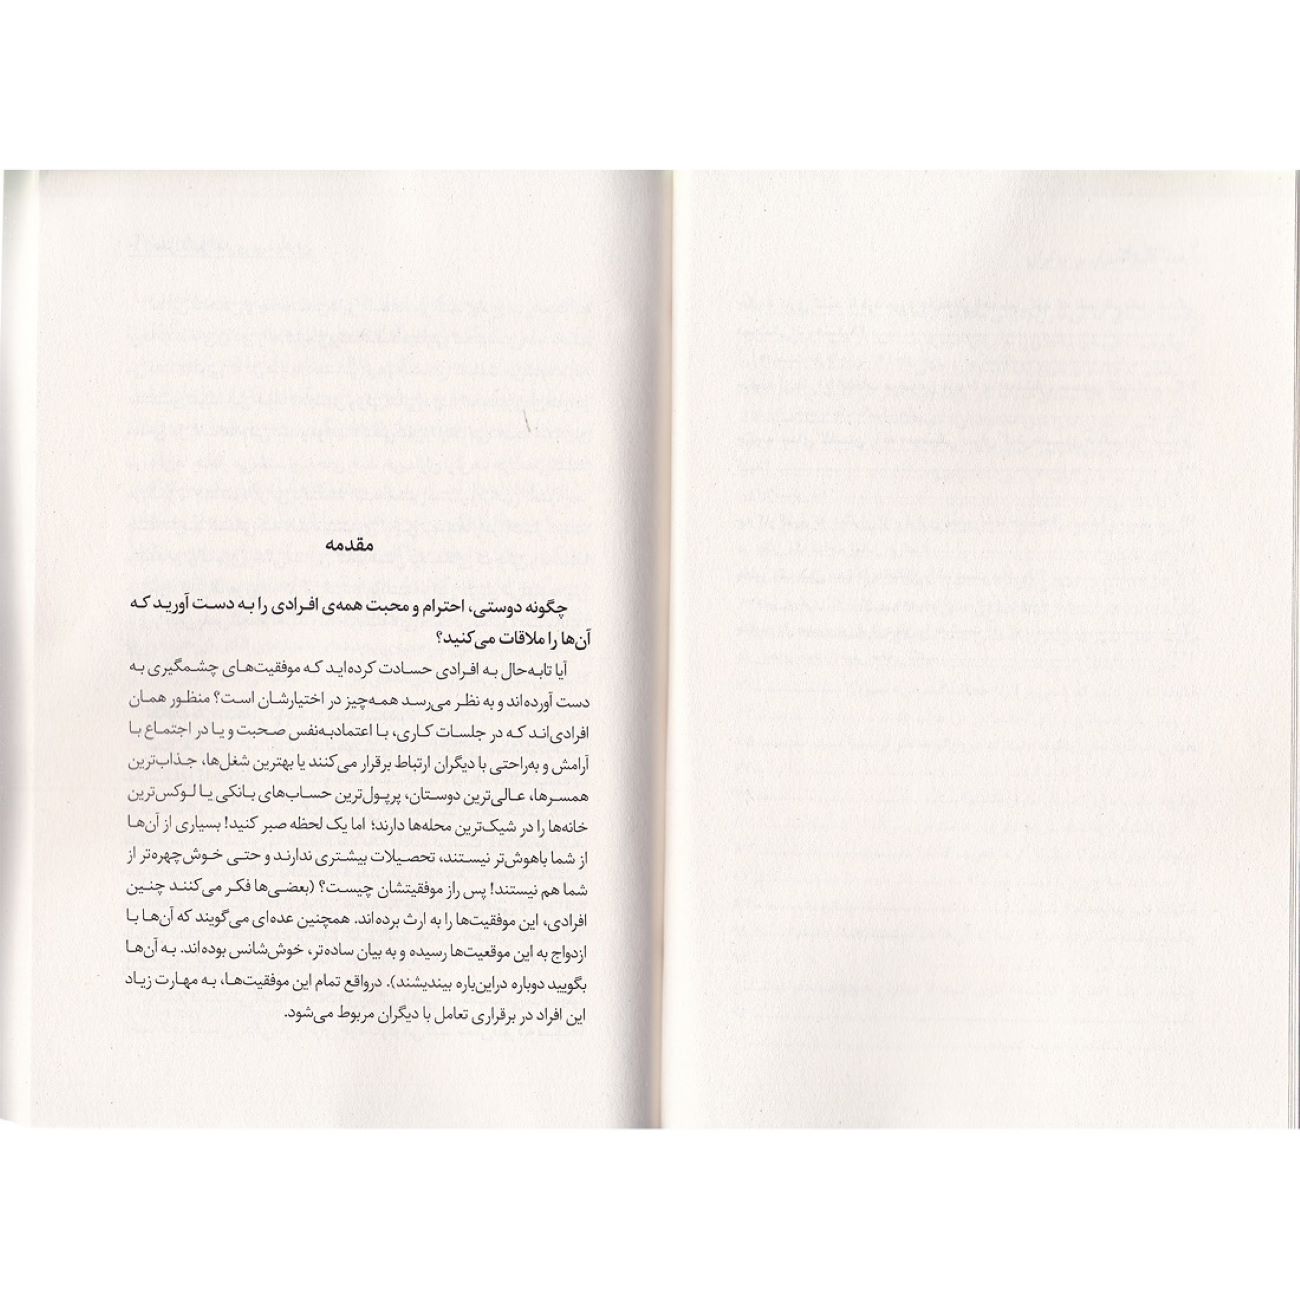 مقدمه
چگونه دوستی، احترام و محبت همه‌ی افرادی را به دست آورید که
آن‌ها را ملاقات می‌کنید؟
آیا تابه‌حال به افرادی حسادت کرده‌اید که موفقیت‌های چشمگیری به
دست آورده‌اند و به نظر می‌رسد همه‌چیز در اختیارشان است؟ منظور همان
افرادی‌اند که در جلسات کاری، با اعتمادبه‌نفس صحبت و یا در اجتماع با
آرامش و به‌راحتی با دیگران ارتباط برقرار می‌کنند یا بهترین شغل‌ها، جذاب‌ترین
همسرها، عالی‌ترین دوستان، پرپول‌ترین حساب‌های بانکی یا لوکس‌ترین
خانه‌ها را در شیک‌ترین محله‌ها دارند؛ اما یک لحظه صبر کنید! بسیاری از آن‌ها
از شما باهوش‌تر نیستند، تحصیلات بیشتری ندارند و حتی خوش‌چهره‌تر از
شما هم نیستند! پس راز موفقیتشان چیست؟ (بعضی‌ها فکر می‌کنند چنین
افرادی، این موفقیت‌ها را به ارث برده‌اند. همچنین عده‌ای می‌گویند که آن‌ها با
ازدواج به این موقعیت‌ها رسیده و به بیان ساده‌تر، خوش‌شانس بوده‌اند. به آن‌ها
بگویید دوباره دراین‌باره بیندیشند). درواقع تمام این موفقیت‌ها، به مهارت زیاد
این افراد در برقراری تعامل با دیگران مربوط می‌شود.